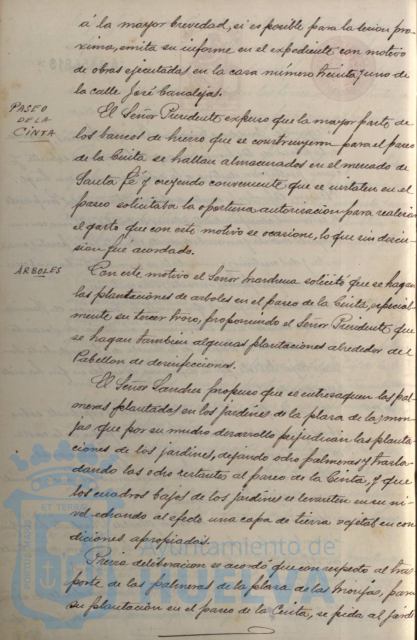 á la mayor brevedad, si es posible para la sesion pro-
xima, emita su informe en el expediente con motivo
de obras ejecutadas en la casa número treinta y uno de
la calle José Canalejas.
PASEO
DE LA
CINTA
El Señor Presidente expuso que la mayor parte de
los bancos de hierro que se construyeron para el paseo
de la Cinta se hallan almacenados en el mercado de
Santa Fé y creyendo conveniente que se instalen en el
paseo solicitaba la oportuna autorizacion para realizar
el gasto que con este motivo se ocasione, lo que sin discu-
sion fué acordado.
ÁRBOLES
Con este motivo el Señor Marchena solicitó que se hagan
las plantaciones de arboles en el paseo de la Cinta, especial-
mente su tercer trozo, proponiendo el Señor Presidente que
se hagan tambien algunas plantaciones alrededor del
Pabellon de desinfecciones.
El Señor Sanchez propuso que se entresaquen las pal-
meras plantadas en los jardines de la plaza de las mon-
jas que por su mucho desarrollo perjudican las planta-
ciones de los jardines, dejando ocho palmeras y trasla-
dando las ocho restantes al paseo de la Cinta, y que
los cuadros bajos de los jardines se levanten en su ni-
vel echando al efecto una capa de tierra vegetal en con-
diciones apropiadas.
Previa deliberacion se acordó que con respecto al tras-
porte de las palmeras de la plaza de las Monjas, para
su plantacion en el paseo de la Cinta, se pida al jardi-
Ayuntamiento de
HUELVA